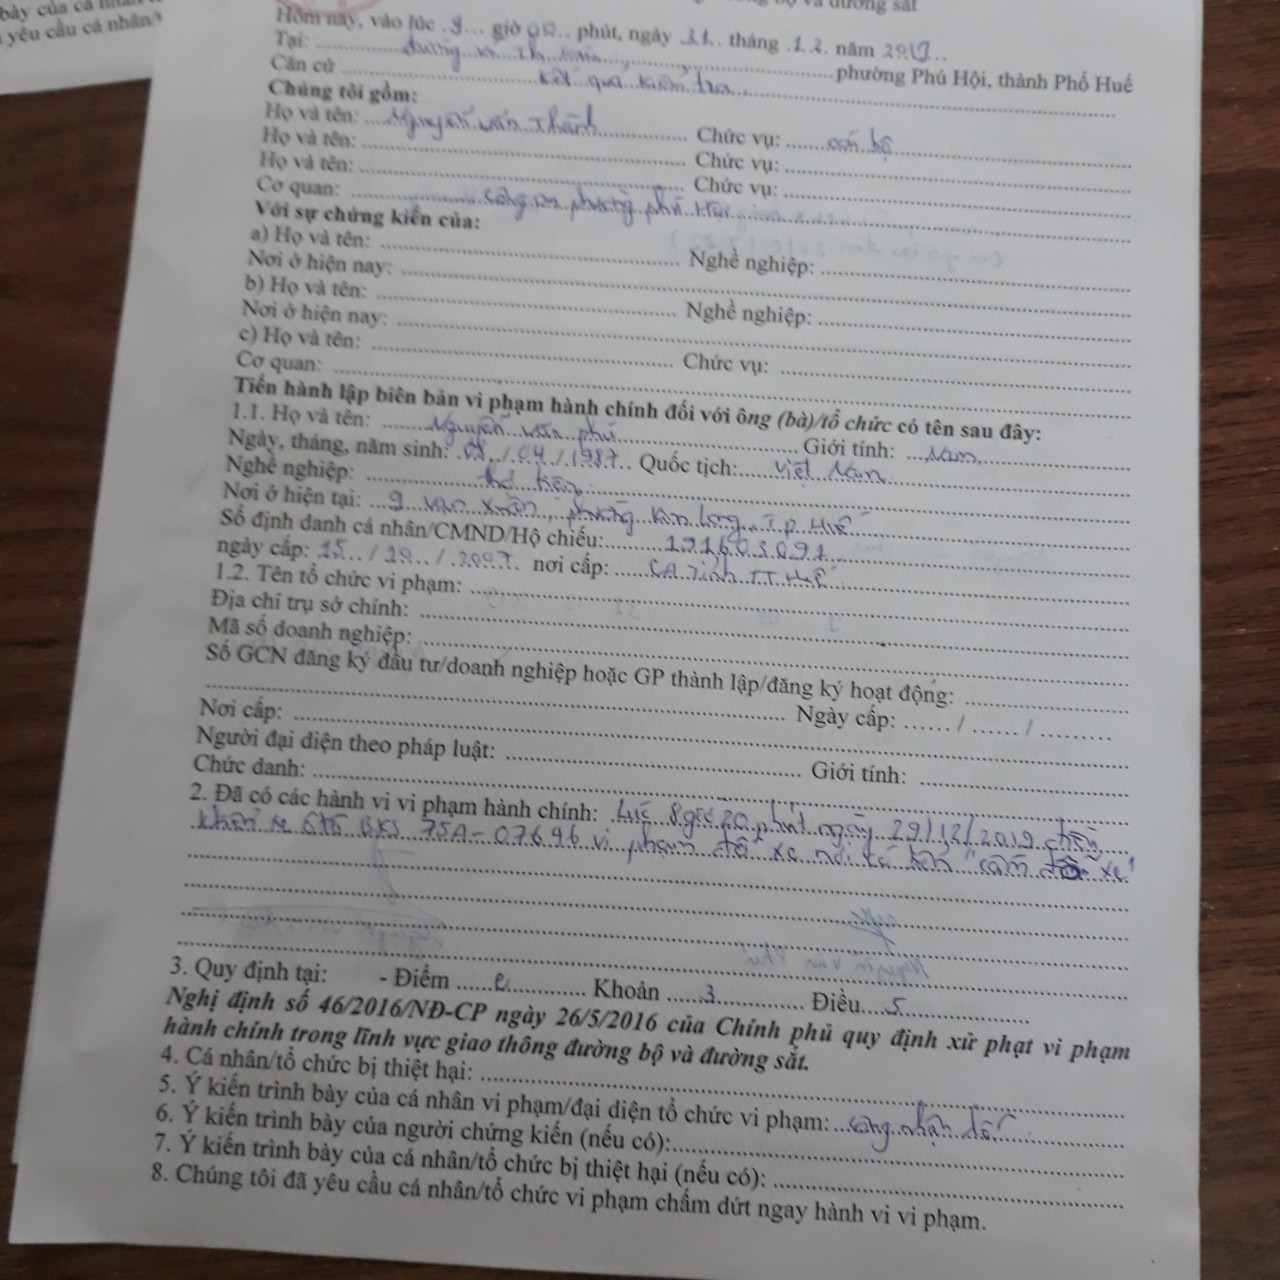 bày của cá nhân
yêu cầu cá nhân
bộ và đường sắt
Hôm nay, vào lúc 9 giờ 00 phút, ngày 31 tháng 12 năm 2019
Tại: đường phường Phú Hội, thành Phố Huế
Căn cứ kết quả kiểm tra
Chúng tôi gồm:
Họ và tên: Nguyễn Văn Thành Chức vụ: cán bộ
Họ và tên: Chức vụ:
Họ và tên: Chức vụ:
Cơ quan: Công an phường Phú Hội
Với sự chứng kiến của:
a) Họ và tên: Nghề nghiệp:
Nơi ở hiện nay:
b) Họ và tên: Nghề nghiệp:
Nơi ở hiện nay:
c) Họ và tên: Chức vụ:
Cơ quan:
Tiến hành lập biên bản vi phạm hành chính đối với ông (bà)/tổ chức có tên sau đây:
1.1. Họ và tên: Nguyễn Văn Phú Giới tính: Nam
Ngày, tháng, năm sinh: 08/04/1987 Quốc tịch: Việt Nam
Nghề nghiệp: thợ
Nơi ở hiện tại: 9 Vạn Xuân, phường Kim Long, T.P. Huế
Số định danh cá nhân/CMND/Hộ chiếu: 191603091
ngày cấp: 15 / / nơi cấp: CA Tỉnh T.T.Huế
1.2. Tên tổ chức vi phạm:
Địa chỉ trụ sở chính:
Mã số doanh nghiệp:
Số GCN đăng ký đầu tư/doanh nghiệp hoặc GP thành lập/đăng ký hoạt động:
Ngày cấp: / /
Nơi cấp:
Người đại diện theo pháp luật: Giới tính:
Chức danh:
2. Đã có các hành vi vi phạm hành chính: Lúc 8 giờ 20 phút ngày 29/12/2019
xe ôtô BKS 75A-07696 vi phạm đỗ xe nơi có biển "cấm đỗ xe"
3. Quy định tại: - Điểm e Khoản 3 Điều 5
Nghị định số 46/2016/NĐ-CP ngày 26/5/2016 của Chính phủ quy định xử phạt vi phạm
hành chính trong lĩnh vực giao thông đường bộ và đường sắt.
4. Cá nhân/tổ chức bị thiệt hại:
5. Ý kiến trình bày của cá nhân vi phạm/đại diện tổ chức vi phạm: công nhận lỗi
6. Ý kiến trình bày của người chứng kiến (nếu có):
7. Ý kiến trình bày của cá nhân/tổ chức bị thiệt hại (nếu có):
8. Chúng tôi đã yêu cầu cá nhân/tổ chức vi phạm chấm dứt ngay hành vi vi phạm.